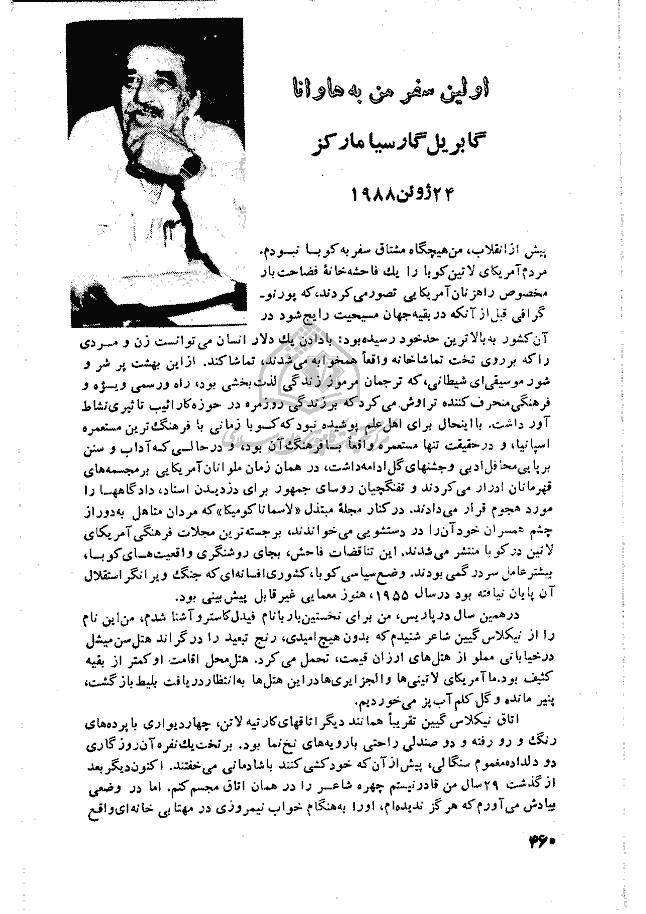 اولین سفر من به هاوانا
گابریل گارسیا مارکز
۲۴ ژوئن ۱۹۸۸
پیش از انقلاب، من هیچگاه مشتاق سفر به کوبا نبودم.
مردم آمریکای لاتین کوبا را یك فاحشه‌خانهٔ فضاحت بار
مخصوص راهزنان آمریکایی تصور می‌کردند، که پورنو-
گرافی قبل از آنکه در بقیه جهان مسیحیت رایج شود در
آن کشور به بالاترین حد خود رسیده بود: با دادن یك دلار انسان می‌توانست زن و مردی
را که بر روی تخت تماشاخانه واقعاً همخوابه می‌شدند، تماشا کند. از این بهشت پر شر و
شور موسیقی‌ای شیطانی، که ترجمان مرموز زندگی لذت بخشی بود، راه و رسمی ویژه و
فرهنگی منحرف کننده تراوش می‌کرد که بر زندگی روزمره در حوزه کارائیب تاثیری نشاط
آور داشت. با اینحال برای اهل علم پوشیده نبود که کوبا زمانی با فرهنگ ترین مستعمره
اسپانیا، و در حقیقت تنها مستعمره واقعاً با فرهنگ آن بود، و در حالی که آداب و سنن
بر پایی محافل ادبی و جشنهای گل ادامه داشت، در همان زمان ملوانان آمریکایی بر مجسمه‌های
قهرمانان ادرار می‌کردند و تفنگچیان روسای جمهور برای دزدیدن اسناد، دادگاهها را
مورد هجوم قرار می‌دادند. در کنار مجلهٔ مبتذل «لاسمانا کومیکا» که مردان متاهل به دور از
چشم همسران خود آن را در دستشویی می‌خواندند، برجسته‌ترین مجلات فرهنگی آمریکای
لاتین در کوبا منتشر می‌شدند. این تناقضات فاحش، بجای روشنگری واقعیت‌های کوبا،
بیشتر عامل سردرگمی بودند. وضع سیاسی کوبا، کشوری افسانه‌ای که جنگ ویرانگر استقلال
آن پایان نیافته بود در سال ۱۹۵۵، هنوز معمایی غیرقابل پیش بینی بود.
در همین سال در پاریس، من برای نخستین بار با نام فیدل کاسترو آشنا شدم، من این نام
را از نیکلاس گیین شاعر شنیدم که بدون هیچ امیدی، رنج تبعید را در گراند هتل سن میشل
در خیابانی مملو از هتل‌های ارزان قیمت، تحمل می‌کرد. هتل محل اقامت او کمتر از بقیه
کثیف بود. ما آمریکای لاتینی‌ها و الجزایری‌ها در این هتل‌ها به انتظار دریافت بلیط بازگشت،
پنیر مانده و گل کلم آب پز می‌خوردیم.
اتاق نیکلاس گیین تقریباً همانند دیگر اتاقهای کارتیه لاتن، چهار دیواری با پرده‌های
رنگ و رو رفته و دو صندلی راحتی با رویه‌های نخ نما بود. بر تخت یك نفره آن روزگاری
دو دلداده مغموم سنگالی، پیش از آن که خودکشی کنند با شادمانی می‌خفتند. اکنون دیگر بعد
از گذشت ۲۹ سال من قادر نیستم چهره شاعر را در همان اتاق مجسم کنم. اما در وضعی
بیادش می‌آورم که هرگز ندیده‌ام، او را به هنگام خواب نیمروزی در مهتابی خانه‌ای واقع
۴۶۰